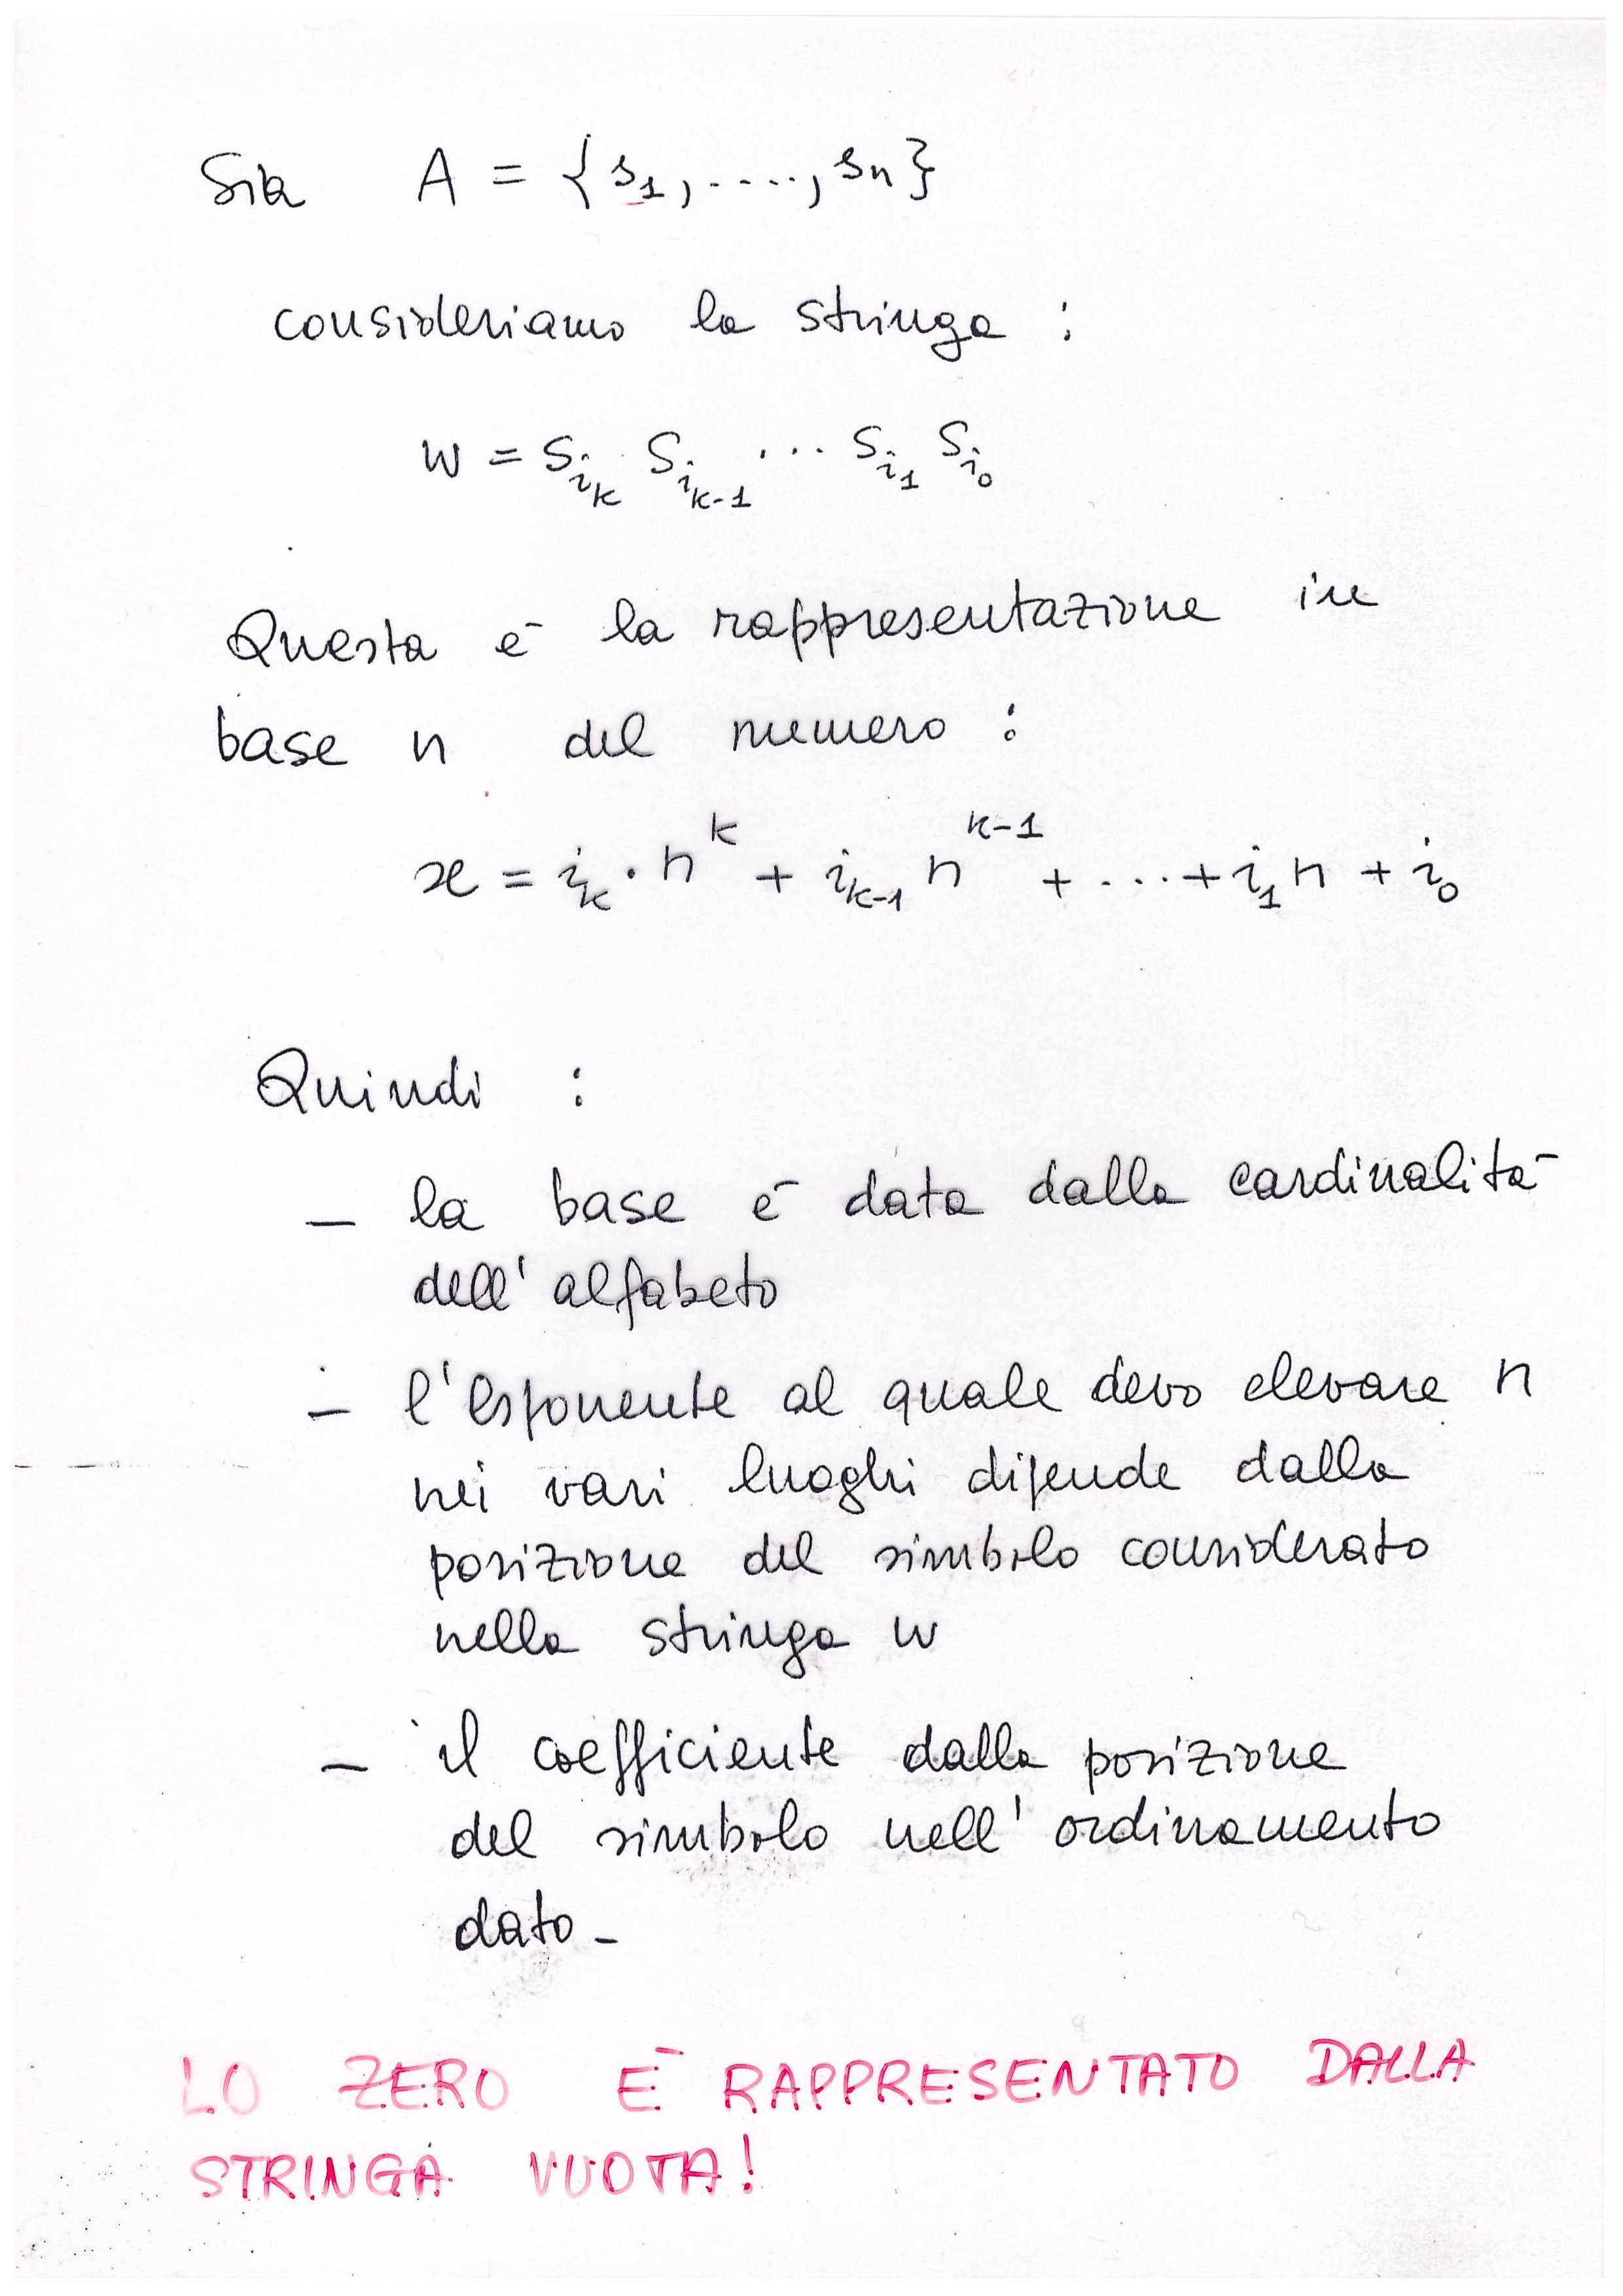 Sia A = {s₁, ...., sₙ}
consideriamo la stringa :
w = S_{i_k} S_{i_{k-1}} ... S_{i_1} S_{i_0}
Questa ē la rappresentazione in
base n del numero :
x = i_k · n^k + i_{k-1} n^{k-1} + ... + i_1 n + i_0
Quindi :
– la base ē data dalla cardinalitā
dell'alfabeto
– l'esponente al quale devo elevare n
nei vari luoghi dipende dalla
posizione del simbolo considerato
nella stringa w
– il coefficiente dalla posizione
del simbolo nell'ordinamento
dato –
LO ZERO Ē RAPPRESENTATO DALLA
STRINGA VUOTA!